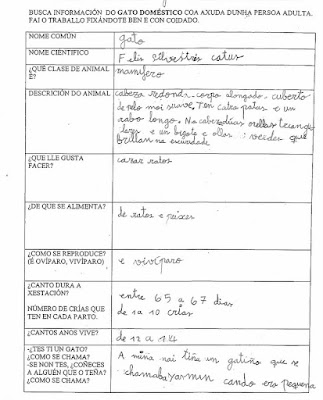 BUSCA INFORMACIÓN DO GATO DOMÉSTICO COA AXUDA DUNHA PERSOA ADULTA.
FAI O TRABALLO FIXÁNDOTE BEN E CON COIDADO.
NOME COMÚN
gato
NOME CIENTÍFICO
Felis silvestris catus
¿QUÉ CLASE DE ANIMAL É?
mamífero
DESCRICIÓN DO ANIMAL
cabeza redonda, corpo alongado, cuberto
de pelo moi suave. Ten catro patas e un
rabo longo. Na cabeza dúas orellas triangu
lares e un bigote e ollos verdes que
brillan na escuridade
¿QUE LLE GUSTA
FACER?
cazar ratos
¿DE QUE SE ALIMENTA?
de ratos e peixes
¿COMO SE REPRODUCE?
(É OVÍPARO, VIVÍPARO)
e vivíparo
¿CANTO DURA A
XESTACIÓN?
entre 65 a 67 dias
NÚMERO DE CRÍAS QUE
TEN EN CADA PARTO.
de 1 a 10 crías
¿CANTOS ANOS VIVE?
de 12 a 14
-¿TES TI UN GATO?
¿COMO SE CHAMA?
-SE NON TES, ¿COÑECES
A ALGUÉN QUE O TEÑA?
¿COMO SE CHAMA?
A miña nai tiña un gatiño que se
chamaba yasmin cando era pequena